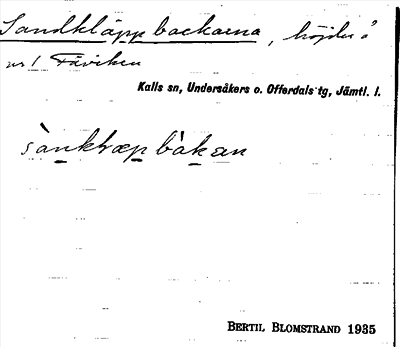 Sandkläppbackarna, höjder å
nr 1 Täviken
Kalls sn, Undersåkers o. Offerdals tg, Jämtl. l.
sànkɫæp bàkan
BERTIL BLOMSTRAND 1935